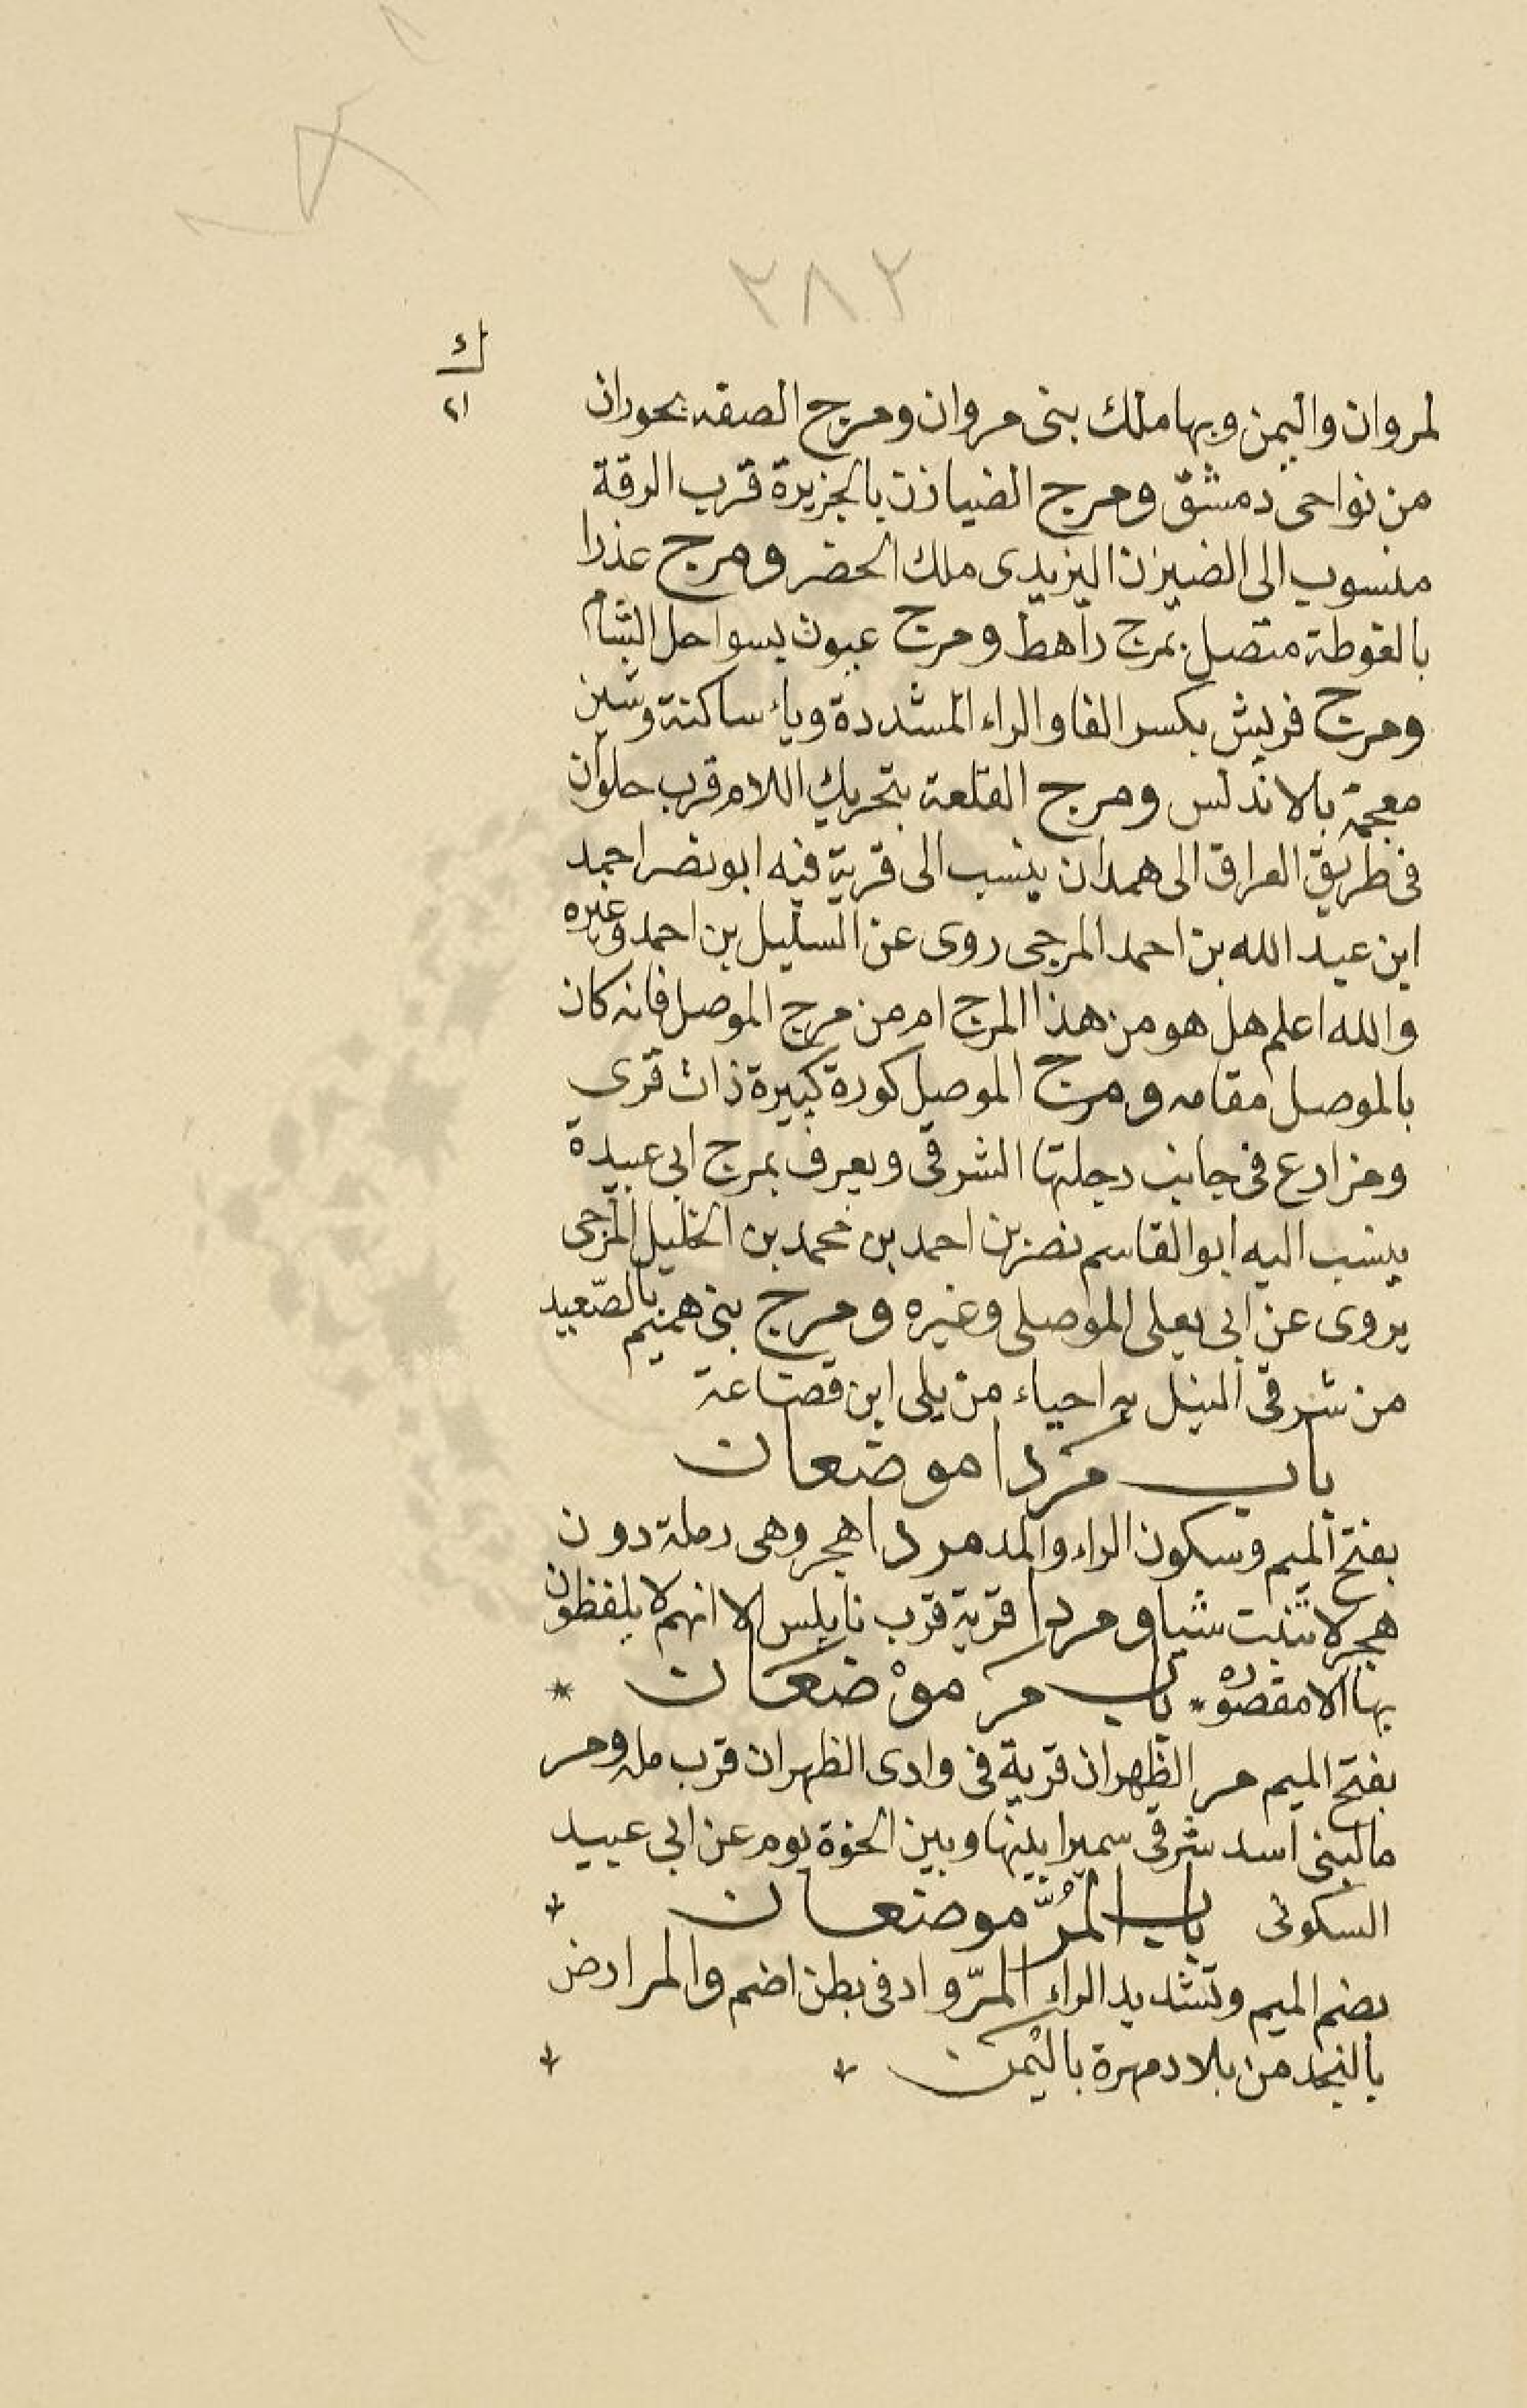 ٢٨٢
ك
٢١
لمروان واليمن وبها ملك بنى مروان ومرج الصفه بحوران
من نواحى دمشق ومرج الضيازن بالجزيرة قرب الرقة
منسوب الى الضيزن اليزيدى ملك الحضر ومرج عذرا
بالغوطة متصل بمرج راهط ومرج عبون بسواحل الشام
ومرج فريش بكسر الفا والراء المشددة وياء ساكنة وشين
معجمة بالاندلس ومرج القلعة بتحريك اللام قرب حلوان
فى طريق العراق الى همدان ينسب الى قرية فيه ابو نصر احمد
ابن عبد الله بن احمد المرجى روى عن السليل بن احمد وغيره
والله اعلم هل هو من هذا المرج ام من مرج الموصل فانه كان
بالموصل مقامه ومرج الموصل كورة كبيرة ذات قرى
ومزارع فى جانب دجلتها الشرقى ويعرف بمرج ابى عبيدة
ينسب اليه ابو القاسم نصر بن احمد بن محمد بن الخليل المرجى
يروى عن ابى يعلى الموصلى وغيره ومرج بنى هميم بالصّعيد
من شرقى النيل به احياء من بلى ابن قضاعة
باب مردا موضعان
بفتح الميم وسكون الراء والمد مردا هجر وهى رملة دون
هجر لا تنبت شيا ومردا قرية قرب نابلس الا انهم لا يلفظون
بها الا مقصوره * باب مر موْضعان *
بفتح الميم مر الظهران قرية فى وادى الظهران قرب مله ومر
ما لبنى اسد شرقى سميرا بينها وبين الخوة يوم عن ابى عبيد
السكونى باب المُرّ موضعان
بضم الميم وتشديد الراء المرّ واد فى بطن اضم والمر ارض
بالنجد من بلاد مهرة باليمن